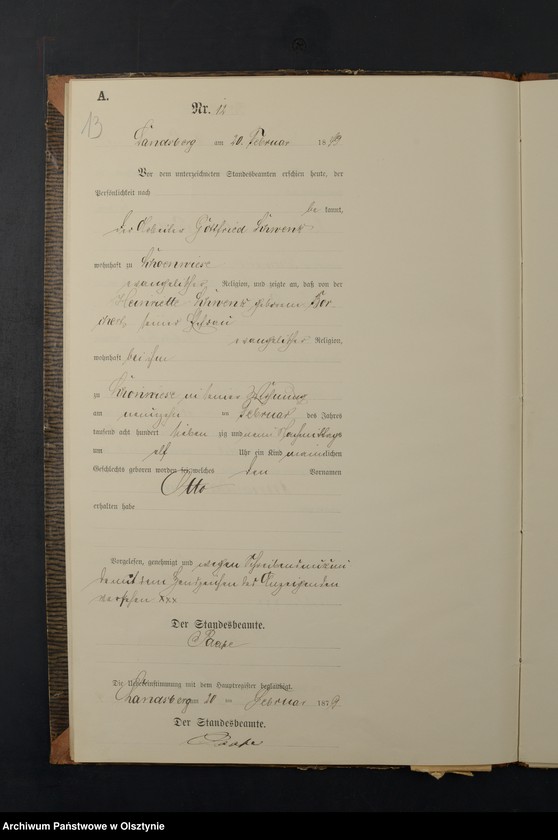 A.
Nr. 12
13
Landsberg am 20. Februar 1879
Vor dem unterzeichneten Standesbeamten erschien heute, der
Persönlichkeit nach
be kannt,
der Arbeiter Gottfried Schwenk
wohnhaft zu Schoenwiese
evangelischer Religion, und zeigte an, daß von der
Henriette Schwenk geborenen
seiner Ehefrau
evangelischer Religion,
wohnhaft bei ihm
zu Schönwiese in seiner Wohnung
am neunzehn ten Februar des Jahres
tausend acht hundert sieben zig und neun Vormittags
um elf Uhr ein Kind männlichen
Geschlechts geboren worden sei, welches den Vornamen
Otto
erhalten habe
Vorgelesen, genehmigt und wegen Schreibens
mit dem Handzeichen des Anzeigenden
versehen xxx
Der Standesbeamte.
Die Uebereinstimmung mit dem Hauptregister beglaubigt.
Landsberg am 20 ten Februar 1879
Der Standesbeamte.
Archiwum Państwowe w Olsztynie